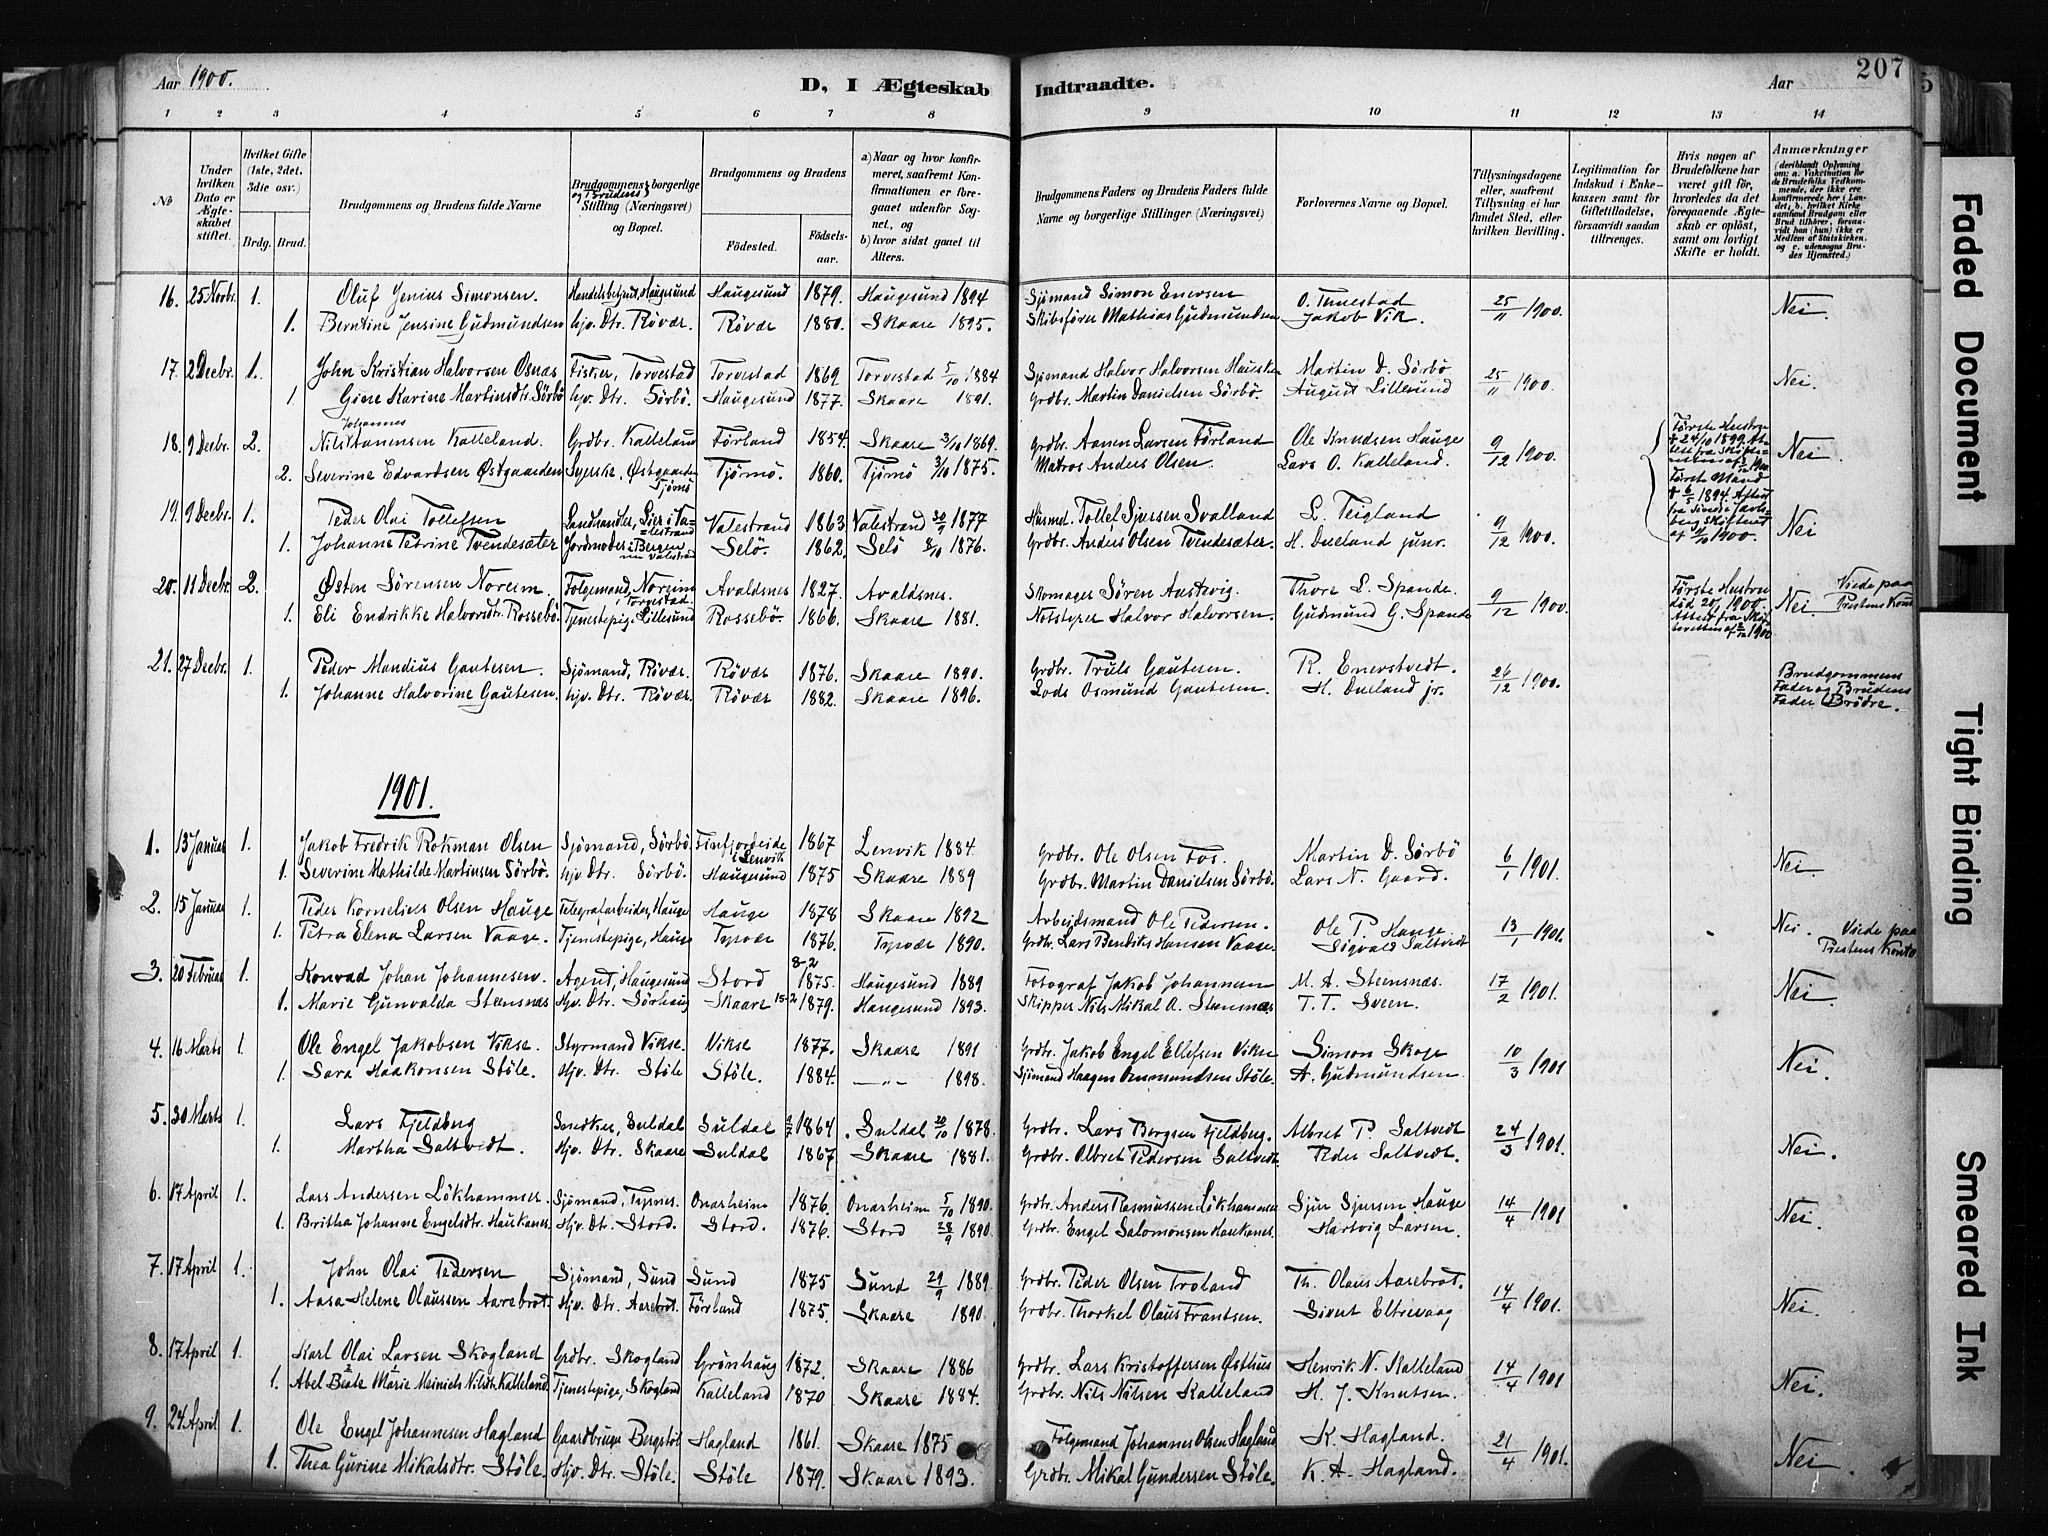 Aar 1900. D, I Ægteskab Indtraadte. Aar 207
1 2 3 4 5 6 7 8 9 10 11 12 13 14
No
Under hvilken Dato er Ægteskabet stiftet.
Hvilket Gifte (1ste, 2det, 3die osv.)
Brdg. Brud.
Brudgommens og Brudens fulde Navne
Brudgommens og Brudens borgerlige Stilling (Næringsvei) og Bopæl.
Brudgommens og Brudens
Fødested. Fødselsaar.
a) Naar og hvor konfirmeret, saafremt Konfirmationen er foregaaet udenfor Sognet, og
b) hvor sidst gaaet til Alters.
Brudgommens Faders og Brudens Faders fulde Navne og borgerlige Stillinger (Næringsvei)
Forlovernes Navne og Bopæl.
Tillysningsdagene eller, saafremt Tillysning ei har fundet Sted, efter hvilken Bevilling.
Legitimation for Indskud i Enkekassen samt for Giftetilladelse, forsaavidt saadan tiltrænges.
Hvis nogen af Brudefolkene har været gift før, hvorledes da det foregaaende Ægteskab er opløst, samt om lovligt Skifte er holdt.
Anmærkninger (deriblandt Oplysning om: a. Vakcination for de Brudefolks Vedkommende, der ikke ere konfirmerede her i Landet, b. hvilket Kirkesamfund Brudgom eller Brud tilhører, forsaavidt han (hun) ikke er Medlem af Statskirken, og c. udensogns Brudes Hjemsted.)
16. 25 Novbr. 1. Oluf Jenius Simonsen. Handelsbetjent, Haugesund Haugesund 1879. Haugesund 1894 Sjømand Simon Enersen O. Temestad 25/11 1900. Nei.
1. Berntine Jensine Gudmundsen hjv. Dtr. Røvær. Røvær 1880. Skaare 1895. Skibsfører Mathias Gudmundsen Jakob Vik.
17. 2 Decbr. 1. John Kristian Halvorsen Osnæs Fisker, Torvestad Torvestad 1869 Torvestad 5/10 1884 Sjømand Halvor Halvorsen Martin D. Sørbø 25/11 1900. Nei.
1 Gine Karine Martinsdtr. Sørbø hjv. Dtr. Sørbø. Haugesund 1877. Skaare 1891. Grdbr. Martin Danielsen Sørbø. August Lillesund
18. 9 Decbr. 2. Nils Johannes Aanensen Kalleland. Grdbr. Kalleland Førland 1854. Skaare 3/10 1869. Grdbr. Aanen Larsen Førland Ole Knudsen Hauge 9/12 1900. Nei.
2. Severine Edvardsen Østgaarden Syerske, Østgaarden Tjømø Tjømø. 1860. Tjømø 3/10 1875. Matros Anders Olsen. Lars O. Kalleland.
Første Hustru † 24/10 1899. Første Mand † 6/5 1894.
19. 9 Decbr. 1. Peder Olai Tollefsen Landhandler, Lier i Valestrand Valestrand 1863 Valestrand 30/9 1877 Husmd. Tollef Sjursen Svalland L. Teigland 9/12 1900. Nei
1. Johanne Petrine Tvendesæter Jordmoder i Bergen nu Valestrand Selø. 1862. Selø 8/10 1876. Grdbr. Anders Olsen Tvendesæter. H. Dueland junr.
20. 11 Decbr. 2. Østen Sørensen Noreim. Folgemand, Noreim i Torvestad Avaldsnes 1827. Avaldsnes. Skomager Søren Austvig. Thore L. Spande. 9/12 1900. Nei. Viede paa Prestens Kont
1. Eli Endrikke Halvorsdtr. Rossebø. Tjenestepige Lillesund Rossebø. 1866. Skaare 1881. Notstyrer Halvor Halvorsen. Gudmund G. Spande
Første Hustru død 1900. Attest fra Skifteretten af 1900
21. 27 Decbr. 1. Peder Mandius Gautesen. Sjømand, Røvær. Røvær 1876. Skaare 1890. Grdbr. Truls Gautesen. R. Enerstvedt. 26/12 1900. Brudgommens Fader og Brudens Fader Brødre.
1. Johanne Halvorine Gautesen. hjv. Dtr. Røvær. Røvær 1882. Skaare 1896. Lods Osmund Gautesen. H. Dueland jr.
1901.
1. 13 Januar 1. Jakob Fredrik Rokman Olsen Sjømand, Sørbø. Finfjordeide i Lenvik 1867 Lenvik 1884. Grdbr. Ole Olsen Fos. Martin D. Sørbø 6/1 1901. Nei.
1. Severine Mathilde Martinsen Sørbø. hjv. Dtr. Sørbø. Haugesund 1875 Skaare 1889 Grdbr. Martin Danielsen Sørbø. Lars N. Gaard.
2. 15 Januar 1. Peder Kornelius Olsen Hauge Telegrafarbeider, Hauge Hauge 1878 Skaare 1892 Arbejdsmand Ole Pedersen. Ole P. Hauge 13/1 1901. Nei. Viede paa Prestens Konto
1. Petra Elena Larsen Vaage. Tjenestepige, Hauge Tysvær 1876. Tysvær 1890. Grdbr. Lars Bendiks Hansen Vaage. Sigvald Saltvedt
3. 20 Februar 1. Konrad Johan Johannesen. Agent, Haugesund Stord 8-2 1875. Haugesund 1889 Fotograf Jakob Johannesen M. A. Steensnæs. 17/2 1901. Nei.
1. Marie Gunvalda Steensnæs Hjv. Dtr. Sørhaug Skaare 15-2 1879. Haugesund 1893. Skipper Nils Mikal A. Stensnæs T. T. Sveen.
4. 16 Marts 1. Ole Engel Jakobsen Vikse. Styrmand Vikse. Vikse 1877. Skaare 1891 Grdbr. Jakob Engel Ellefsen Vikse Simon Skoge 10/3 1901 Nei.
1. Sara Haakonsen Støle. Hjv. Dtr. Støle Støle. 1884. —„— 1898. Sjømand Haagen Onmundsen Støle. A. Gudmundsen
5. 30 Marts 1. Lars Fjeldberg Snedker, Suldal Suldal 1864 Suldal 20/10 1878. Grdbr. Lars Bergsen Fjeldberg. Albret P. Saltvedt 24/3 1901. Nei.
1. Martha Saltvedt. Hjv. Dtr. Skaare Suldal 1867 Skaare 1881. Grdbr. Albret Pedersen Saltvedt. Peder Saltvedt.
6. 17 April 1. Lars Andersen Løkhammer. Sjømand, Tysnes. Onarheim 1876. Onarheim 5/10 1890. Grdbr. Anders Rasmussen Løkhammer Sjur Sjursen Hauge 14/4 1901 Nei.
1. Britha Johanne Engelsdtr. Haukanes. Hjv. Dtr. Stord. Stord. 1876. Stord 28/9 1890. Grdbr. Engel Salomonsen Haukanes. Hartvig Larsen.
7. 17 April 1. John Olai Pedersen Sjømand, Sund Sund 1875 Sund 29/9 1889 Grdbr. Peder Olsen Troland Th. Olaus Aarebrot. 14/4 1901. Nei.
1. Aasa Helene Olaussen Aarebrot. Hjv. Dtr. Aarebrot. Førland 1875. Skaare 1890. Grdbr. Thorkel Olaus Frantsen. Sivert Eltrevaag
8. 17 April 1. Karl Olai Larsen Skogland Grdbr. Skogland Grønhaug 1872. Skaare 1886 Grdbr. Lars Kristoffersen Østhus Henrik N. Kalleland 14/4 1901 Nei.
1. Abel Beate Marie Meinich Nilsdtr. Kalleland. Tjenestepige, Skogland Kalleland 1870 Skaare 1884. Grdbr. Nils Nilsen Kalleland H. J. Knutsen.
9. 24 April 1. Ole Engel Johannesen Hagland Gaardbruger Bergstøl Hagland 1861. Skaare 1875 Folgemand Johannes Olsen Hagland K. Hagland. 21/4 1901. Nei.
1. Thea Gurine Mikalsdtr. Støle. Hjv. Dtr. Støle. Støle 1879. Skaare 1893. Grdbr. Mikal Gundersen Støle. K. A. Hagland.
Faded Document
Tight Binding
Smeared Ink